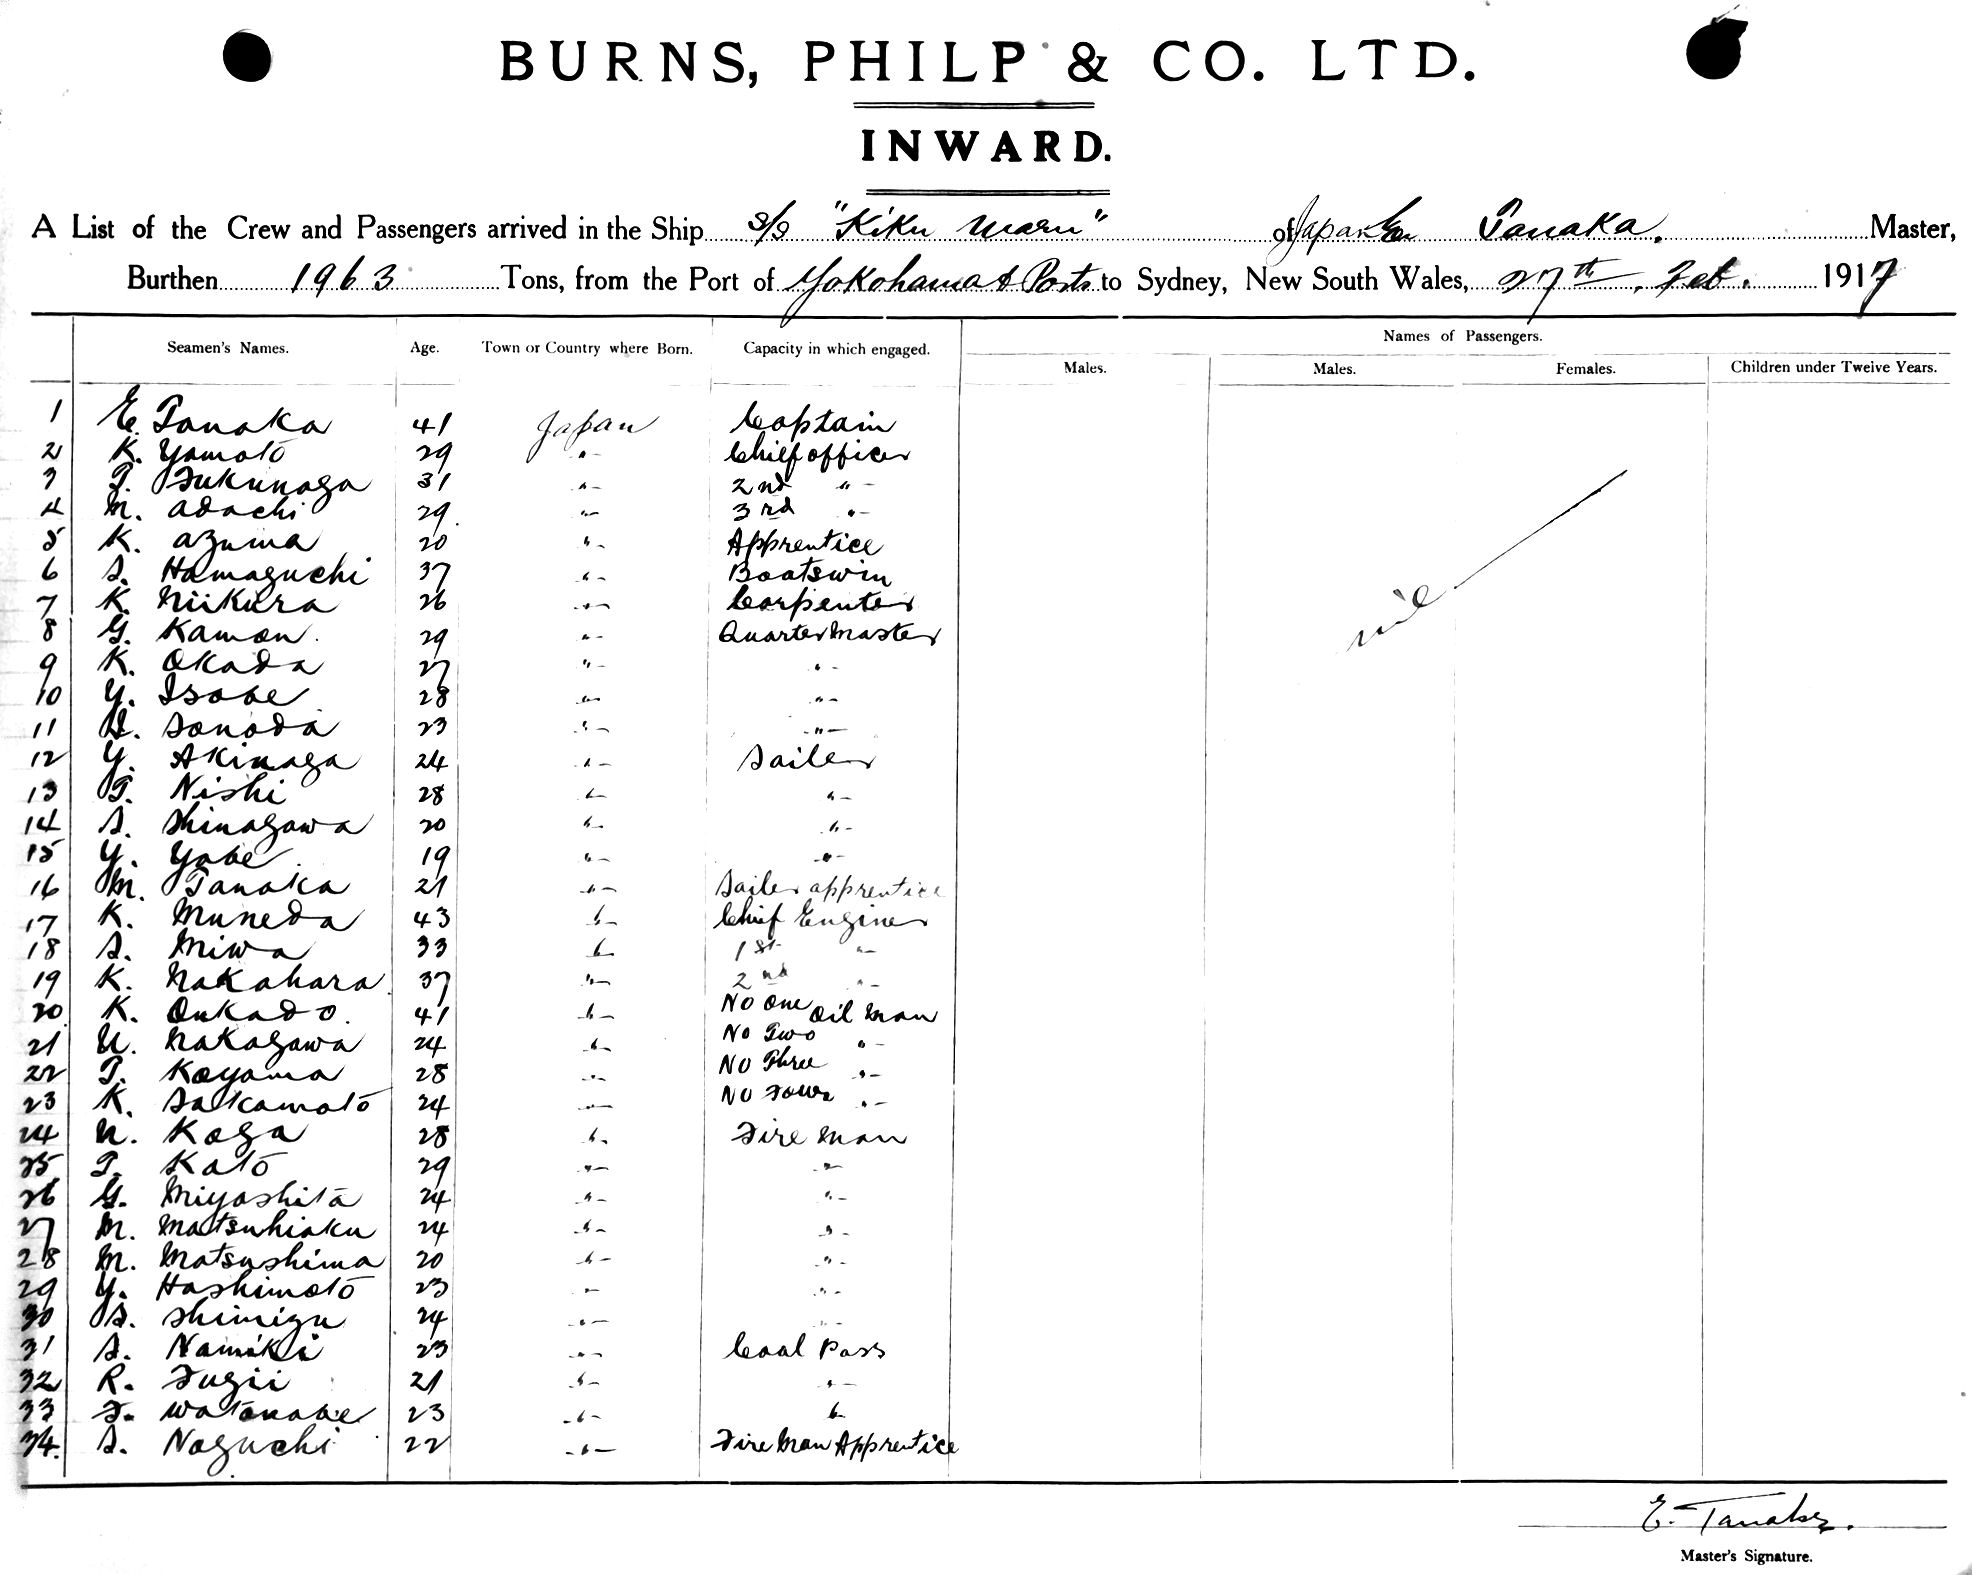 BURNS, PHILP & CO. LTD.
INWARD.
A List of the Crew and Passengers arrived in the Ship s/s "Kiku Maru" of Japan E. Tanaka. Master,
Burthen 1963 Tons, from the Port of Yokohama & Ports to Sydney, New South Wales, 27th. Feb. 1917
Names of Passengers.
Seamen's Names. Age. Town or Country where Born. Capacity in which engaged. Males. Males. Females. Children under Twelve Years.
1 E. Tanaka 41 Japan Captain
2 K. Yamoto 29 " Chief officer
3 T. Fukunaga 31 " 2nd "
4 M. Adachi 29 " 3rd "
5 K. Azuma 20 " Apprentice
6 S. Hamaguchi 37 " Boatswin
7 K. Niikura 26 " Carpenter
8 G. Kamon 29 " Quarter Master
9 K. Okada 27 " "
10 Y. Isobe 28 " "
11 S. Sonoda 23 " "
12 Y. Akinaga 24 " Sailer
13 T. Nishi 28 " "
14 S. Shinagawa 20 " "
15 Y. Yabe 19 " "
16 M. Tanaka 21 " Sailer apprentice
17 K. Muneda 43 " Chief Enginer
18 S. Miwa 33 " 1st "
19 K. Nakahara 37 " 2nd "
20 K. Onkado. 41 " No One Oil Man
21 U. Nakagawa 24 " No Two "
22 T. Koyama 28 " No Three "
23 K. Sakamoto 24 " No Four "
24 N. Koga 28 " Fire Man
25 T. Kato 29 " "
26 G. Miyashita 24 " "
27 M. Matsuhiaku 24 " "
28 M. Matsushima 20 " "
29 Y. Hashimoto 23 " "
30 S. Shimizu 24 " "
31 S. Namiki 23 " Coal Pass
32 R. Fugii 21 " "
33 F. Watanabe 23 " "
34. S. Noguchi 22 " Fire Man Apprentice
nil
E. Tanaka.
Master's Signature.